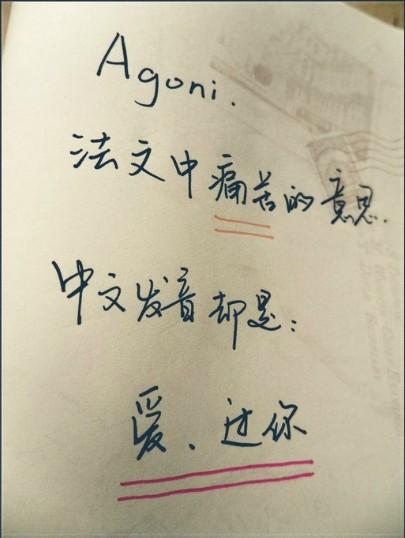 Agoni.
法文中痛苦的意思.
中文发音却是:
爱.过你